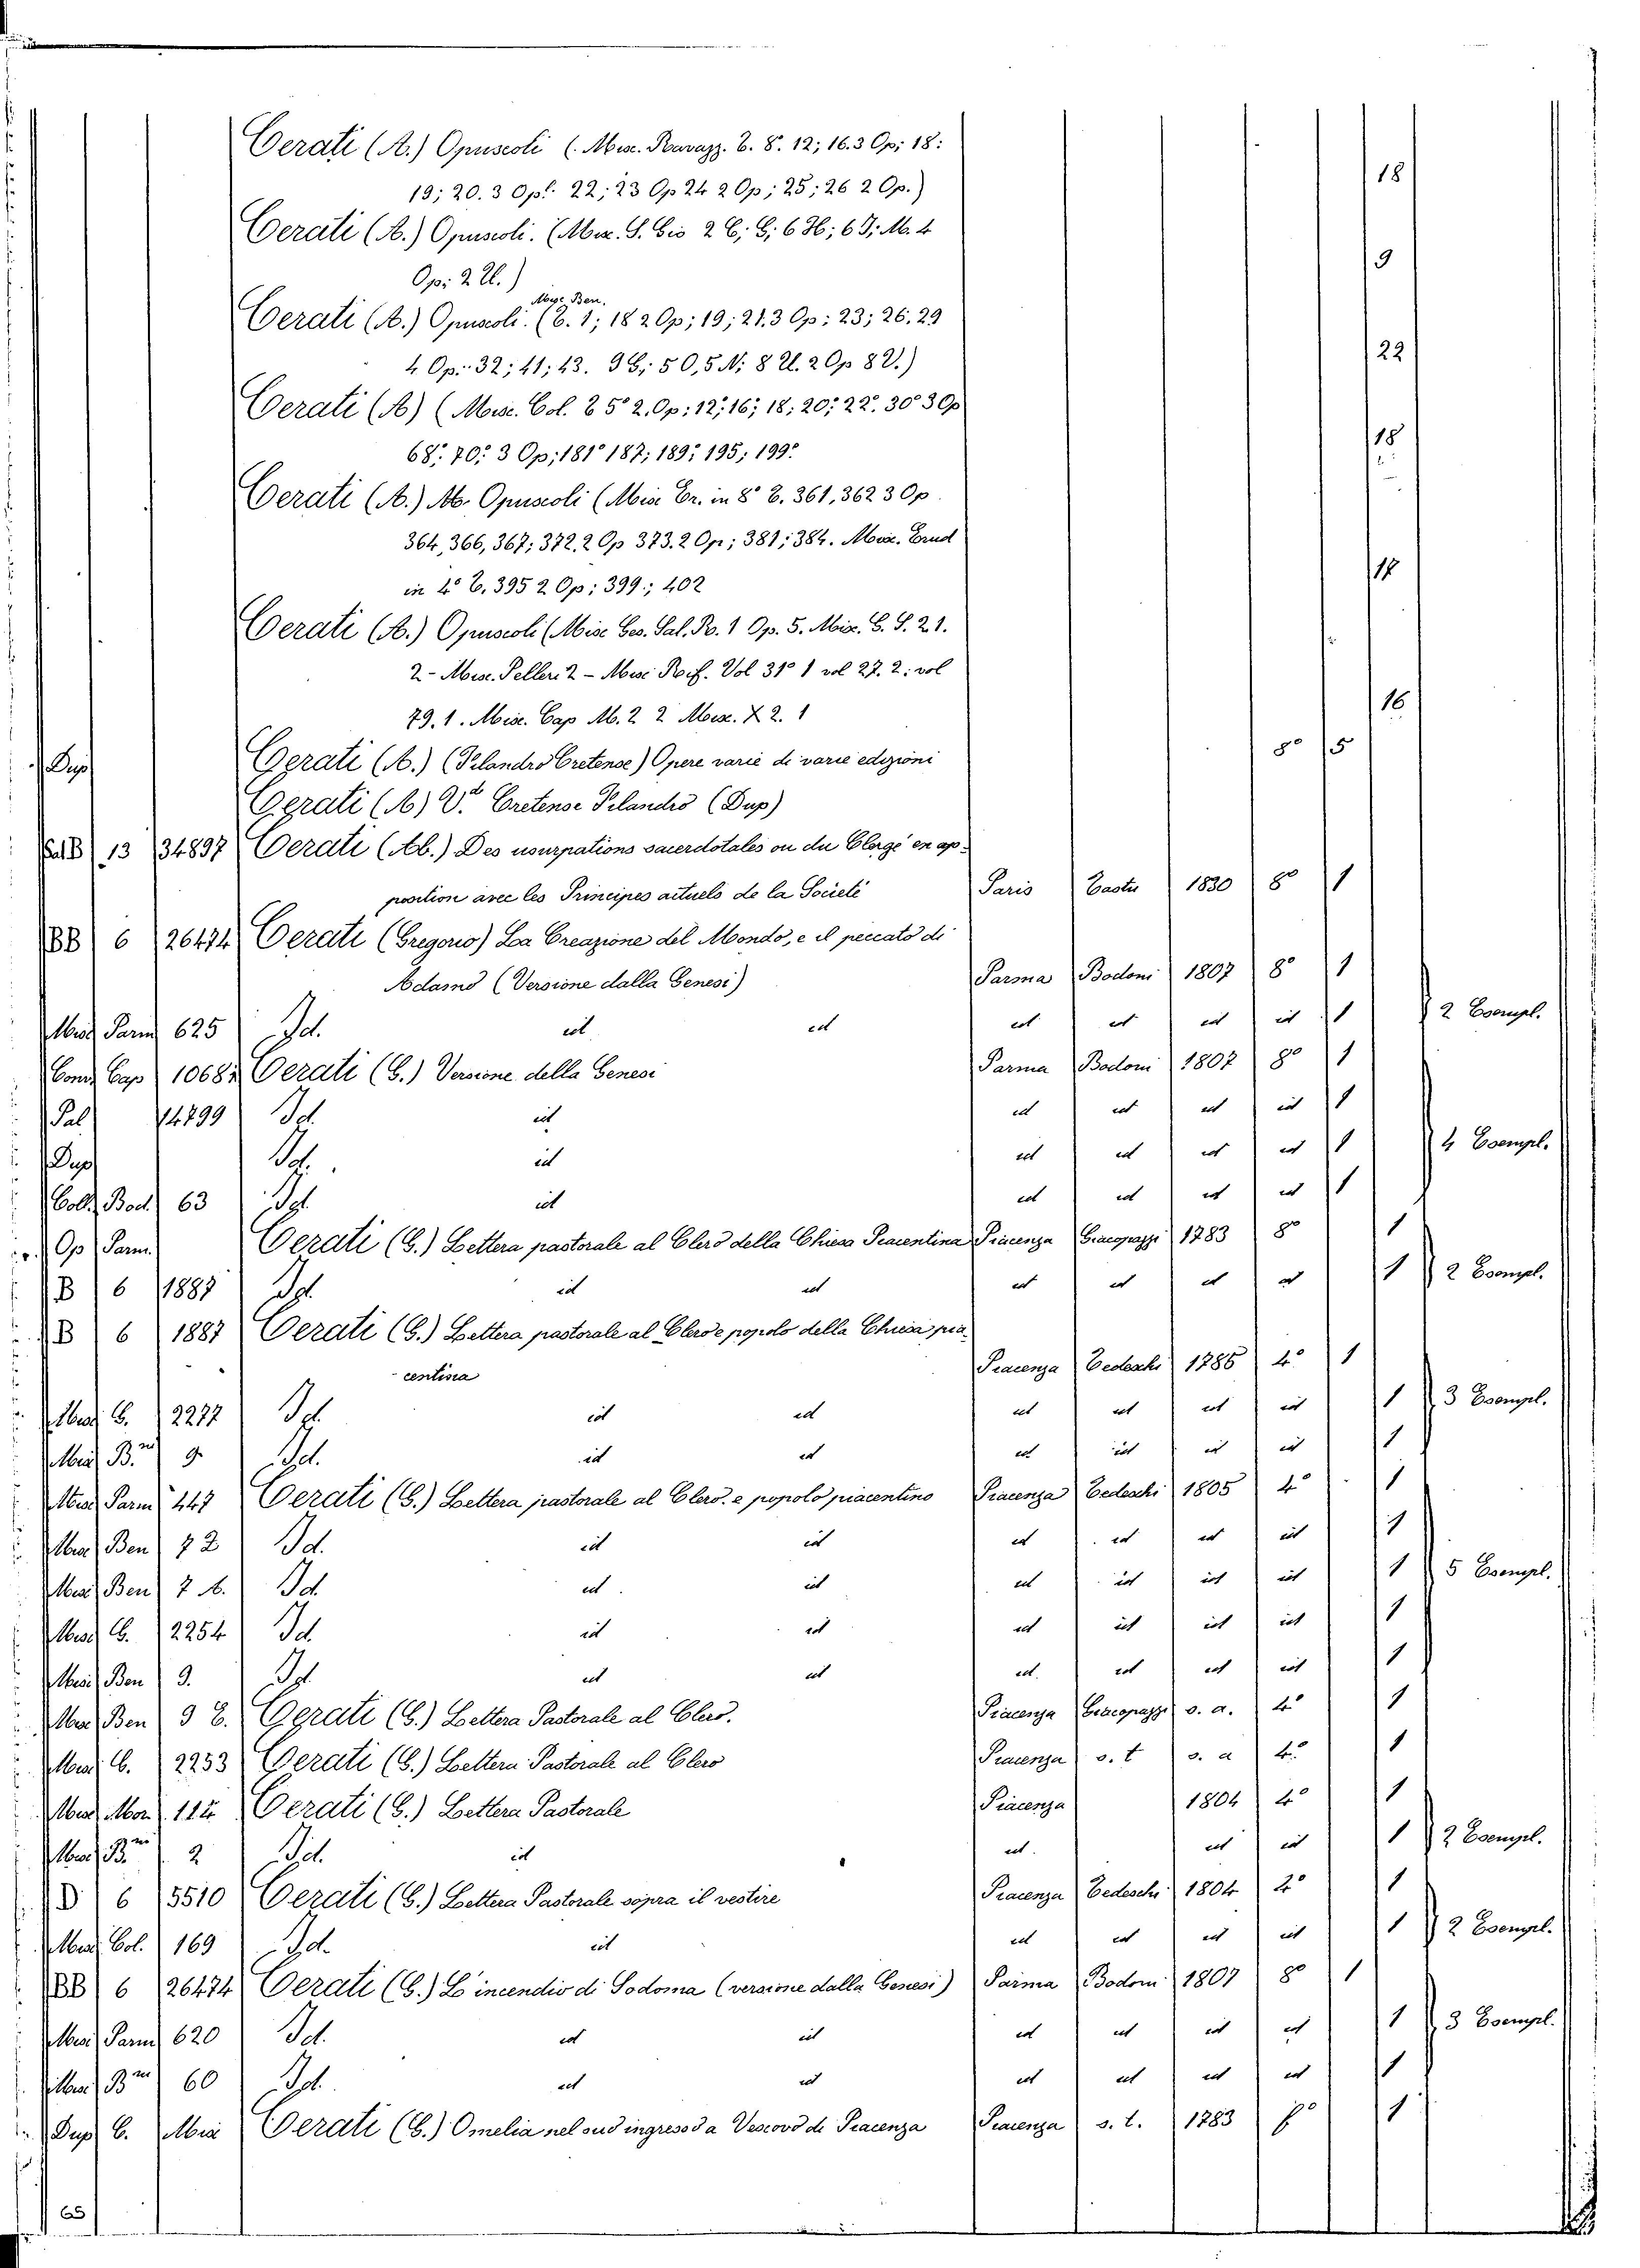 Cerati (A.) Opuscoli (Misc. Ravazz. C. 8. 12; 16. 3 Op; 18:
19; 20. 3 Opl. 22; 23 Op 24 2 Op; 25; 26 2 Op.) 18
Cerati (A.) Opuscoli. (Mix. S. Gio 2 C; G; 6 H; 6 I; M. 4
Op; 2 U.) 9
Misc. Ben.
Cerati (A.) Opuscoli. (C. 1; 18 2 Op; 19; 21. 3 Op; 23; 26. 29
4 Op. 32; 41; 43. 9 G; 50, 5 N; 8 U. 2 Op 82.) 22
Cerati (A) (Misc. Col. 2 5° 2. Op; 12; 16; 18; 20; 22. 30° 3 Op
68; 70; 3 Op; 181° 187; 189; 195; 199° 18
Cerati (A.) Ab. Opuscoli (Misc Er. in 8° C. 361, 362 3 Op.
364, 366, 367; 372. 2 Op 373. 2 Op; 381; 384. Misc. Erud
in 4° C. 395 2 Op; 399; 402 17
Cerati (A.) Opuscoli (Misc Ges. Sal. Po. 1 Op. 5. Mix. G. S. 21.
2 - Misc. Pelleri 2 - Misc Rof. Vol 31° 1 vol 27. 2; vol
79. 1. Misc. Cap M. 2 2 Misc. X 2. 1 16
Dup Cerati (A.) (Filandro Cretense) Opere varie di varie edizioni 8° 5
Cerati (A) V. Cretense Filandro (Dup)
Sal B 13 34897 Cerati (Ab.) Des usurpations sacerdotales ou du Clergé en op-
position avec les Principes actuels de la Societé Paris Eastu 1830 8° 1
BB 6 26474 Cerati (Gregorio) La Creazione del Mondo, e il peccato di
Adamo (Versione dalla Genesi) Parma Bodoni 1807 8° 1
Misc Parm 625 Id. id id id id id id 1 2 Esempl.
Com Cap 10682 Cerati (G.) Versione della Genesi Parma Bodoni 1807 8° 1
Pal 14799 Id. id id id id id 1
Dup Id. id id id id id 1 4 Esempl.
Coll. Bod. 63 Id. id id id id id 1
Op Parm. Cerati (G.) Lettera pastorale al Clero della Chiesa Piacentina Piacenza Giacopazzi 1783 8° 1
B 6 1887 Id. id id id id id id 1 2 Esempl.
B 6 1887 Cerati (G.) Lettera pastorale al Clero e popolo della Chiesa pia-
centina Piacenza Tedeschi 1786 4° 1
Misc G. 2277 Id. id id id id id id 1 3 Esempl.
Misc B.ni 9 Id. id id id id id id 1
Misc Parm 447 Cerati (G.) Lettera pastorale al Clero. e popolo piacentino Piacenza Tedeschi 1805 4° 1
Misc Ben 7 2 Id. id id id id id id 1
Misc Ben 7 A. Id id id id id id id 1 5 Esempl.
Misc G. 2254 Id id id id id id id 1
Misc Ben 9. Id id id id id id id 1
Misc Ben 9 C. Cerati (G.) Lettera Pastorale al Clero. Piacenza Giacopazzi s. a. 4° 1
Misc G. 2253 Cerati (G.) Lettera Pastorale al Clero Piacenza s. t s. a 4° 1
Misc Mor. 112 Cerati (G.) Lettera Pastorale Piacenza 1804 4° 1
Misc B.ni 2 Id. id id id id 1 2 Esempl.
D 6 5510 Cerati (G.) Lettera Pastorale sopra il vestire Piacenza Tedeschi 1804 2° 1
Misc Col. 169 Id. id id id id id 1 2 Esempl.
BB 6 26474 Cerati (G.) L'incendio di Sodoma (versione dalla Genesi) Parma Bodoni 1807 8° 1
Misc Parm 620 Id. id id id id id id 1 3 Esempl.
Misc B.ni 60 Id. id id id id id id 1
Dup C. Mix Cerati (G.) Omelia nel suo ingresso da Vescovo di Piacenza Piacenza s. t. 1783 f° 1
65